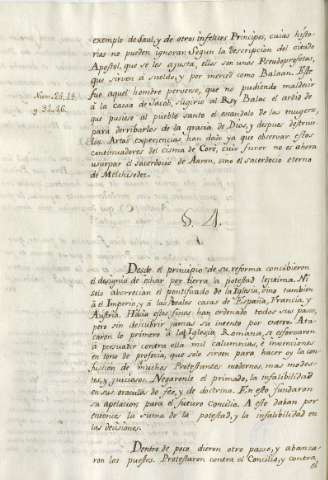 exemplo de Saul, y de otros infelices Principes, cuias histo-
rias no pueden ignorar. Segun la descripcion del citado
Apostol, que se les ajusta, ellos son unos Pseudoprofetas,
que sirven á sueldo, y por merced como Balaan. Este
fue aquel hombre perverso, que no pudiendo maldecir
á la casa de Jacob, sugirio al Rey Balac el ardid de
que pusiese al pueblo santo el escandalo de las mugeres,
para derribarlos de la gracia de Dios, y despues destruir-
los. Artas experiencias han dado ya que observar estos
continuadores del cisma de Coré, cuio furor no es ahora
usurpar el sacerdocio de Aaron, sino el sacerdocio eterno
de Melchisedec.
Num. 24. 14.
y 31. 16.
§. 4.
Desde el principio de su reforma concibieron
el designio de echar por tierra la potestad legitima. No
solo aborrecian el pontificado de la Iglesia, sino tambien
á el Imperio, y á las Reales casas de España, Francia, y
Austria. Hácia estos fines han ordenado todos sus pasos,
pero sin descubrir jamas su intento por entero. Ata-
caron lo primero á la Iglesia Romana, se esforzaron
á persuadir contra ella mil calumnias, é invenciones
en tono de profecia, que solo sirven para hacer oy la con-
fusion de muchos Protestantes modernos, mas modes-
tos, y juiciosos. Negaronle el primado, la infalibilidad
en sus oraculos de fée, y de doctrina. En esto fundaron
su apelacion para el futuro Concilio. A este daban por
entonces la suma de la potestad, y la infalibilidad en
las decisiones.
Dentro de poco dieron otro paso, y abanza-
ron los puestos. Protestaron contra el Concilio, y contra
el